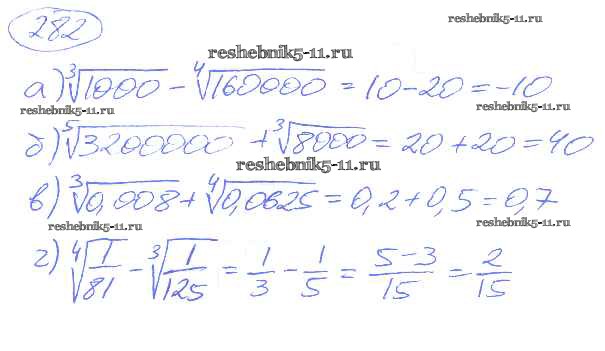 282
reshebnik5-11.ru
reshebnik5-11.ru
а) ∛1000 − ∜160000 = 10 − 20 = −10
reshebnik5-11.ru
reshebnik5-11.ru
б) ⁵√3200000 + ∛8000 = 20 + 20 = 40
reshebnik5-11.ru
в) ∛0,008 + ∜0,0625 = 0,2 + 0,5 = 0,7
reshebnik5-11.ru
reshebnik5-11.ru
г) ∜(1/81) − ∛(1/125) = 1/3 − 1/5 = (5−3)/15 = 2/15